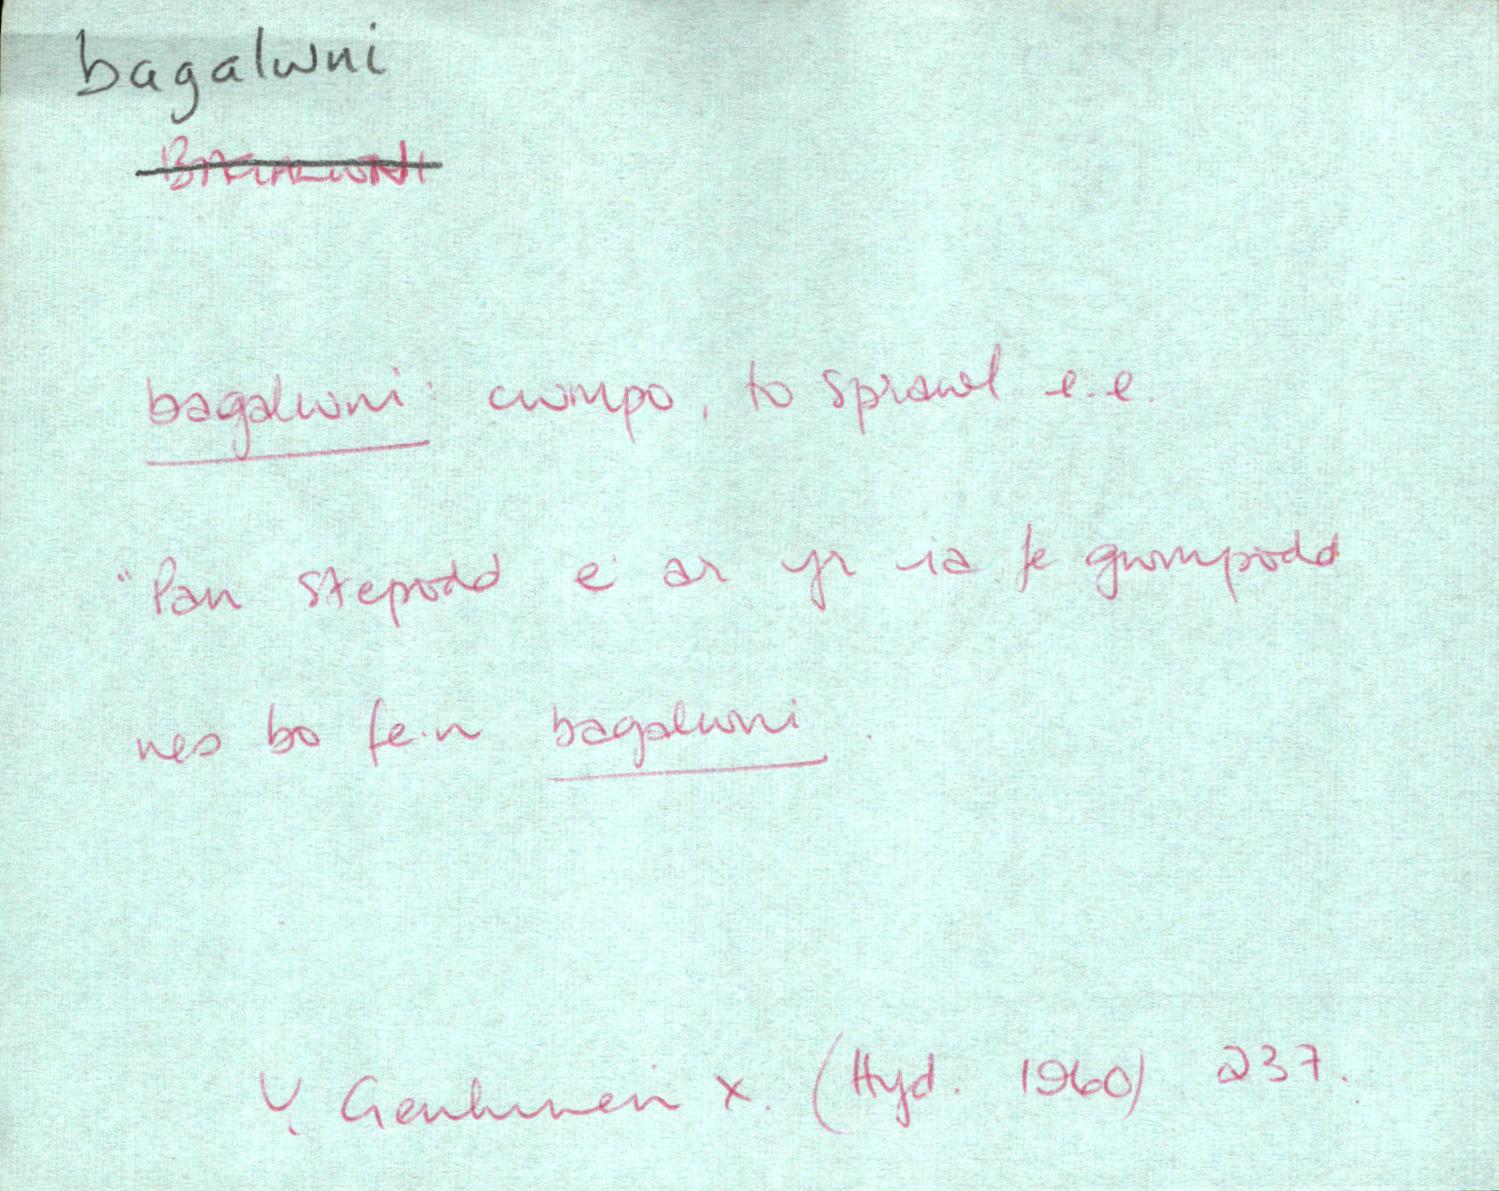 bagalwni
BAGALWNI
bagalwni: cwmpo, to sprawl e.e.
"Pan stepodd e ar yr ia fe gwmpodd
nes bo fe.n bagalwni.
Y Genhinen X. (Hyd. 1960) 237.